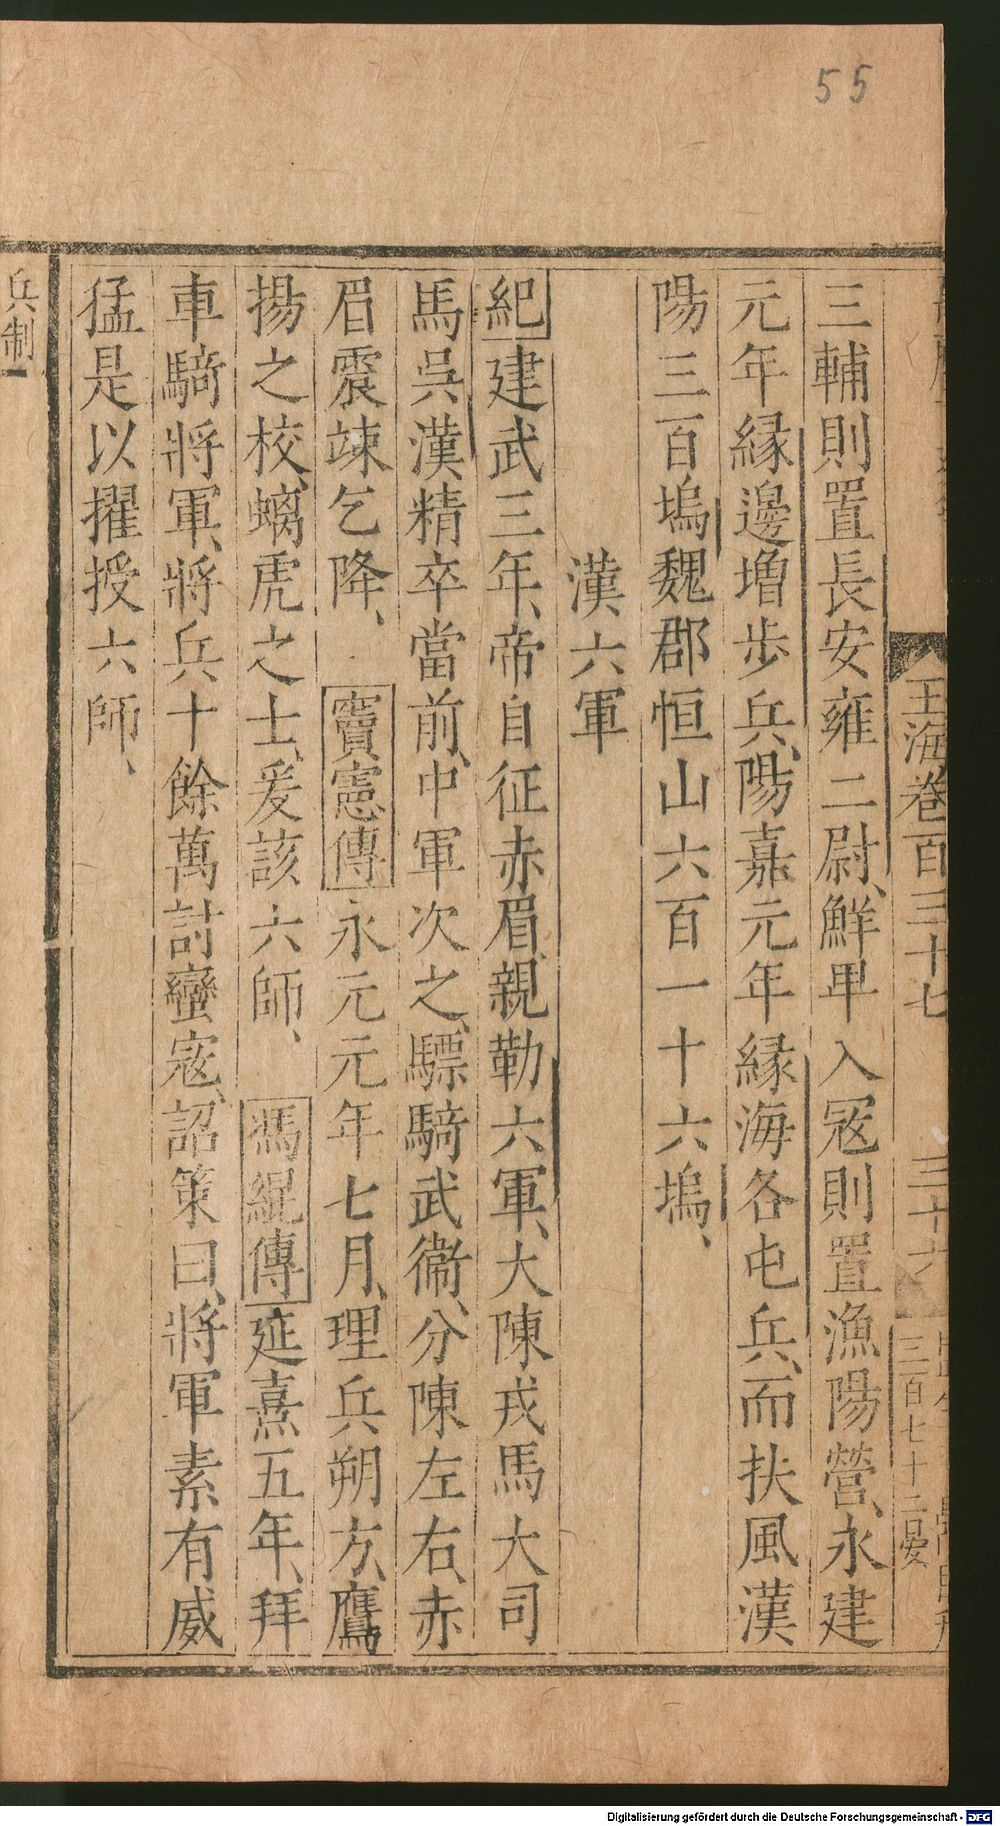 55
玉海卷百三十七
三十六
三百七十二晏
三輔則置長安雍二尉、鮮𤰞入寇則置漁陽營、永建
元年緣邊增步兵、陽嘉元年緣海各屯兵、而扶風漢
陽三百塢魏郡恒山六百一十六塢、
漢六軍
紀建武三年、帝自征赤眉、親勒六軍、大陳戎馬大司
馬吳漢精卒當前、中軍次之、驃騎武衞、分陳左右、赤
眉震竦乞降、竇憲傳永元元年七月、理兵朔方、鷹
揚之校、螭虎之士、爰該六師、馮緄傳延熹五年、拜
車騎將軍、將兵十餘萬討蠻寇、詔策曰、將軍素有威
猛是以擢授六師、
兵制一
Digitalisierung gefördert durch die Deutsche Forschungsgemeinschaft - DFG